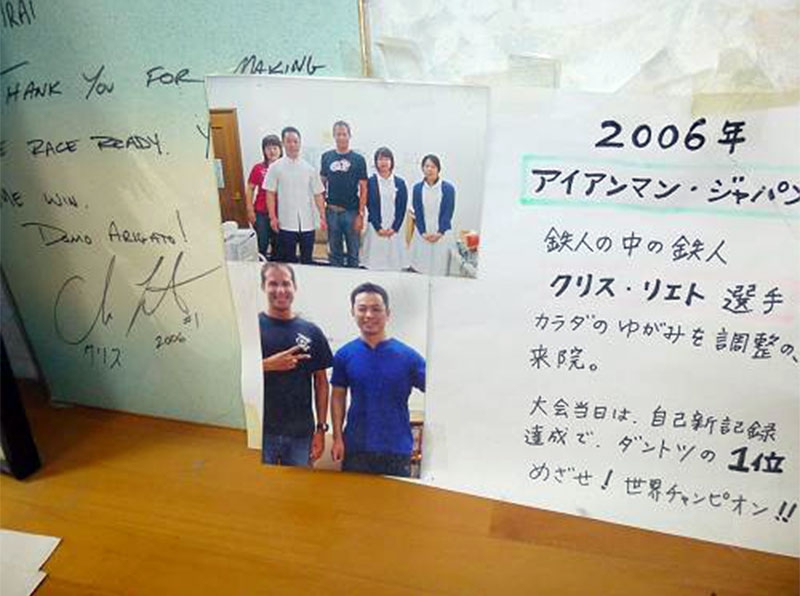 IRAI
THANK YOU FOR MAKING
RACE READY.
ME WIN.
DOMO ARIGATO!
#1
2006
クリス
2006年
アイアンマン・ジャパン
鉄人の中の鉄人
クリス・リエト 選手
カラダのゆがみを調整の、
来院。
大会当日は、自己新記録
達成で、ダントツの1位
めざせ!世界チャンピオン!!